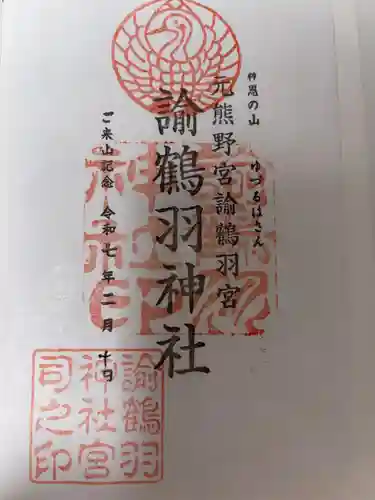 神恩の山
ゆづるはさん
元熊野宮諭鶴羽宮
諭鶴羽神社
ご来山記念 令和七年二月十日
諭鶴羽
神社宮
司之印